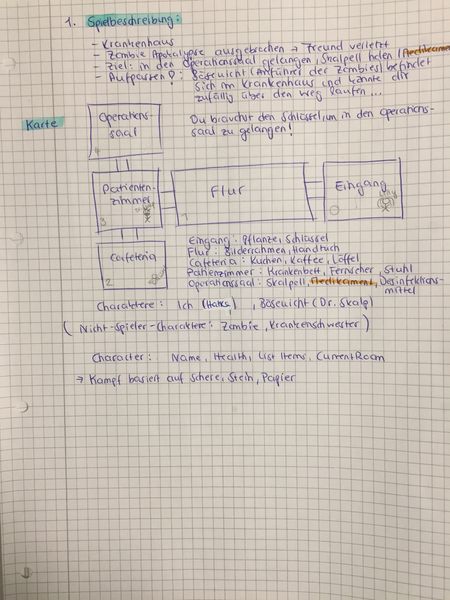 1. Spielbeschreibung:
- Krankenhaus
- Zombie Apokalypse ausgebrochen → Freund verletzt
- Ziel: in den Operationssaal gelangen, Skalpell holen (Medikament
- Aufpassen!: Bösewicht (Anführer der Zombies) befindet
sich im Krankenhaus und könnte dir
zufällig über den Weg laufen...
Karte
Operations-
saal
4
Du brauchst den Schlüssel, um in den Operations-
saal zu gelangen!
Patienten-
zimmer
3
Flur
1
Eingang
0
Cafeteria
2
Eingang: Pflanze, Schlüssel
Flur: Bilderrahmen, Handtuch
Cafeteria: Kuchen, Kaffee, Löffel
Patienzimmer: Krankenbett, Fernseher, Stuhl
Operationssaal: Skalpell, Medikament, Desinfektions-
mittel
Charaktere: Ich, Bösewicht (Dr. Skalp)
(Nicht-Spieler-Charaktere: Zombie, Krankenschwester)
Character: Name, Health, List Items, CurrentRoom
→ Kampf basiert auf Schere, Stein, Papier